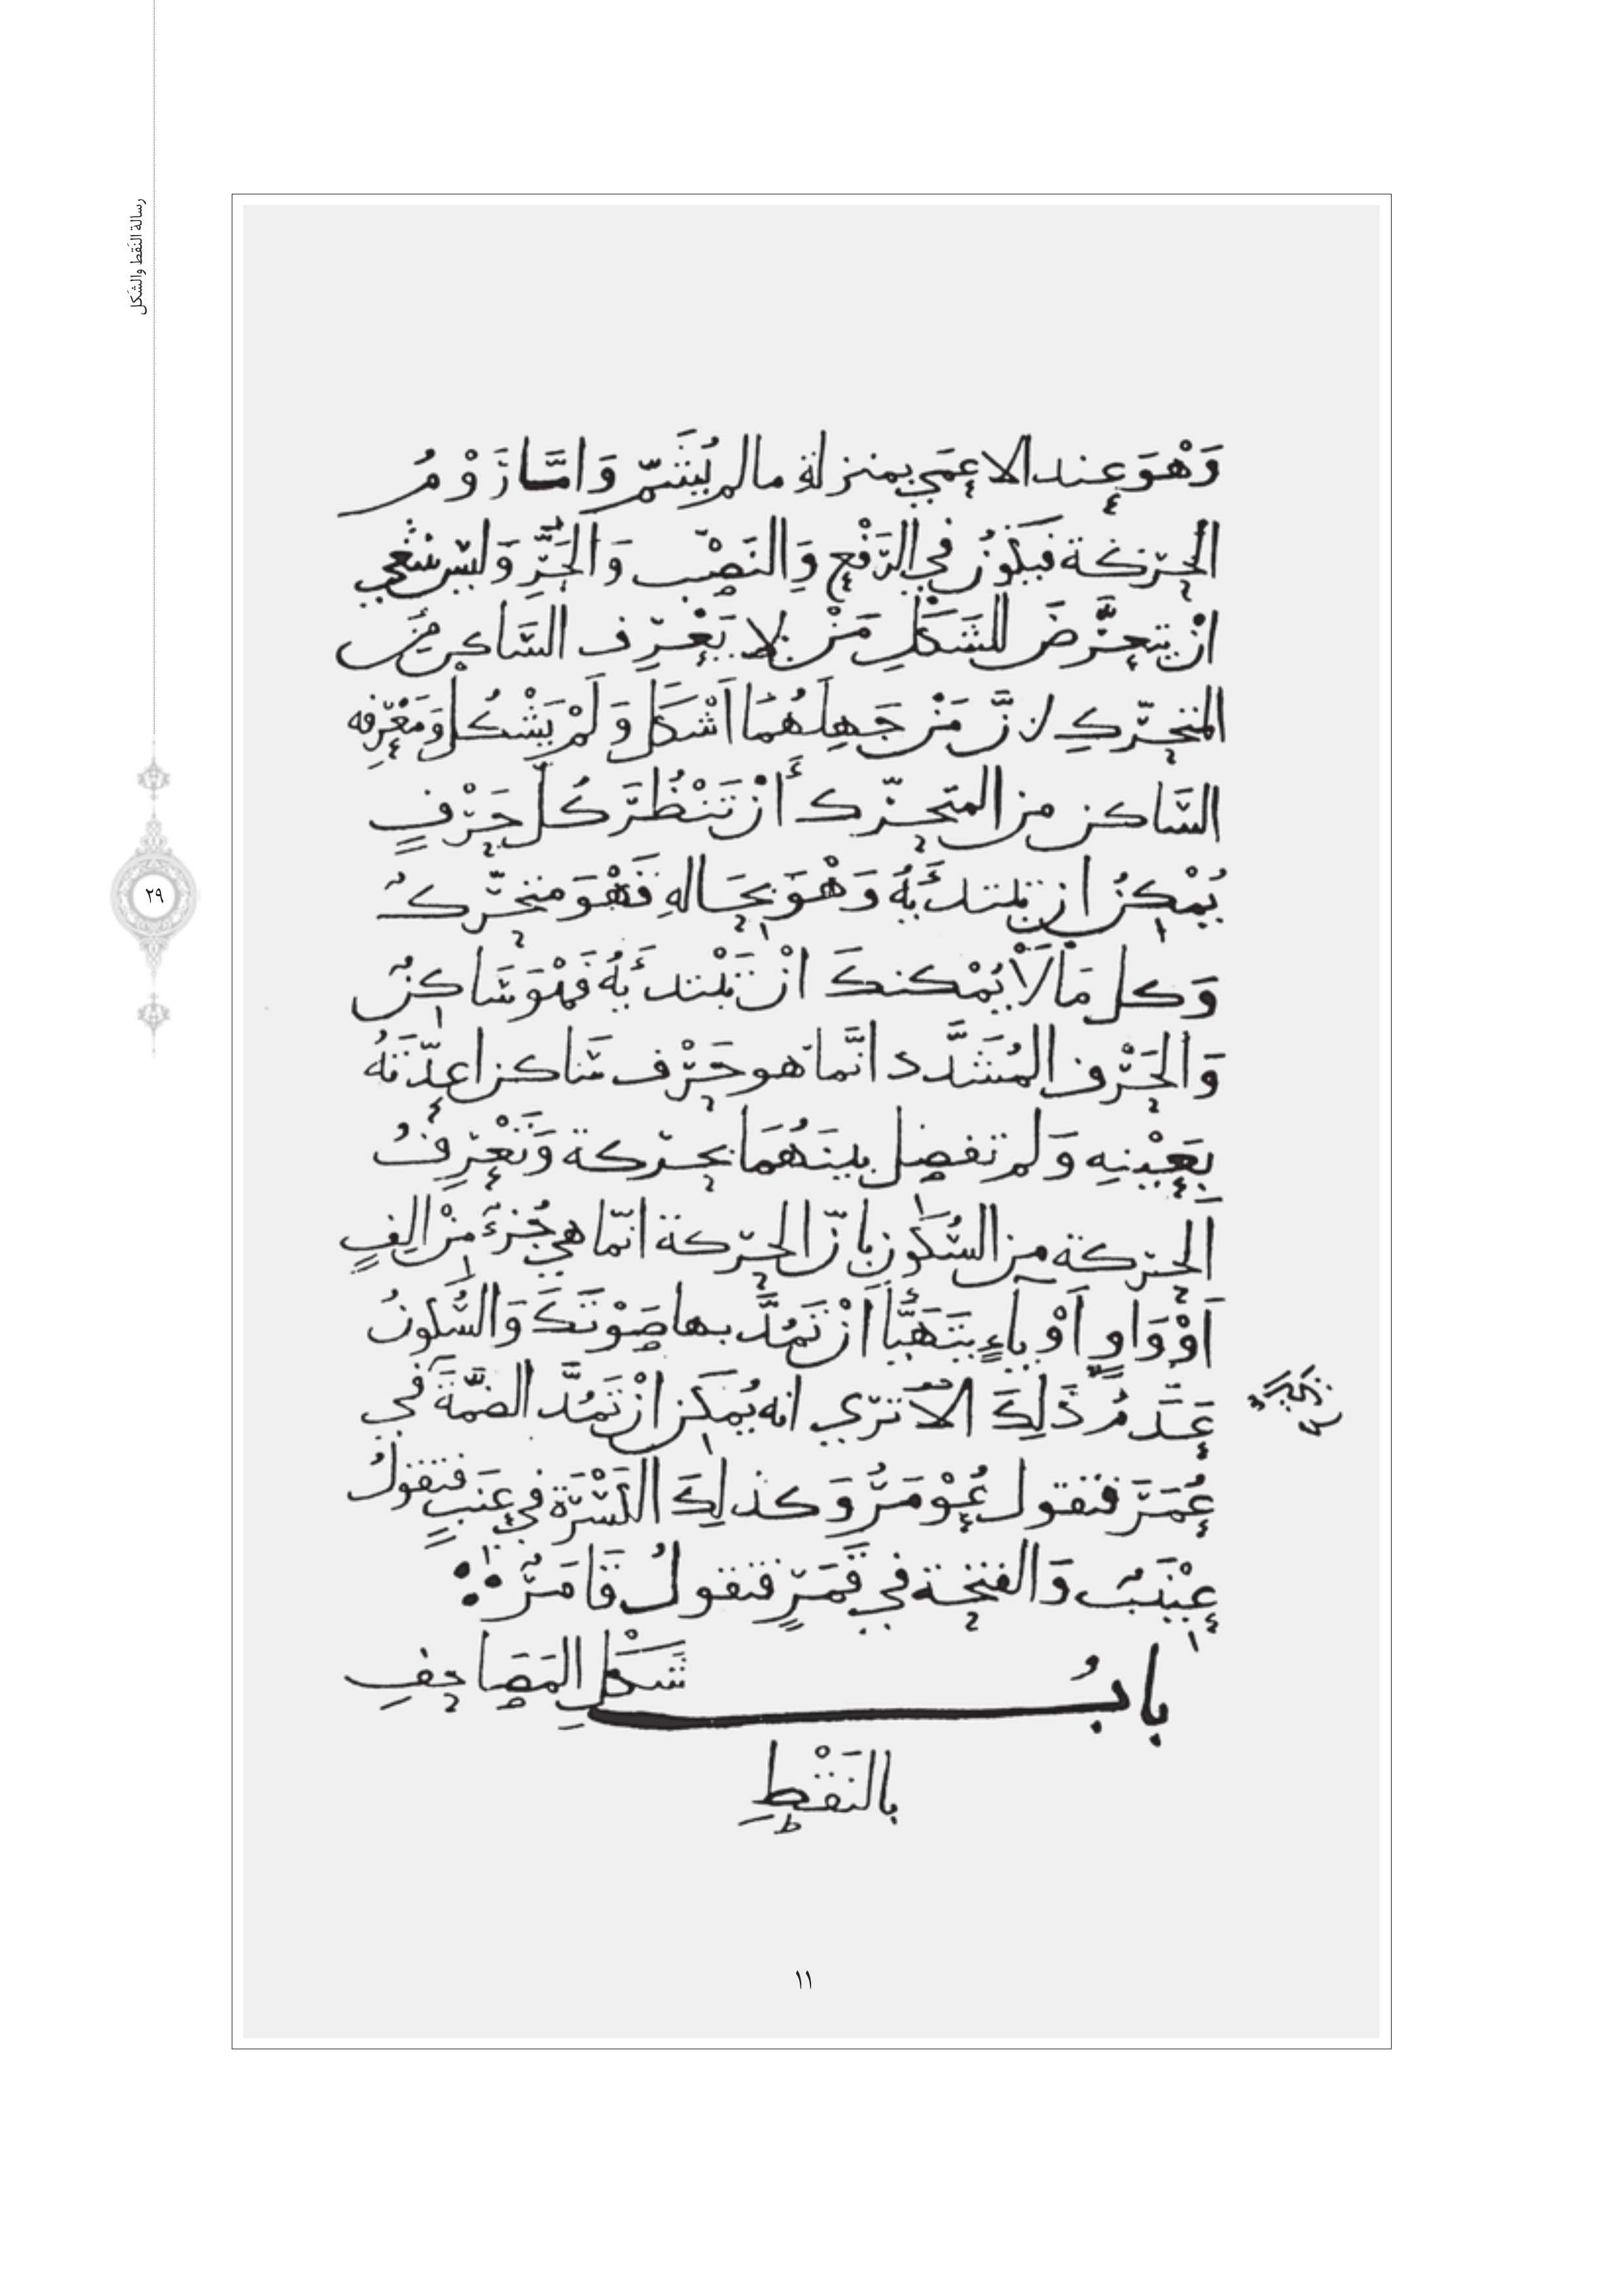 رسالة النَقط والشَكل
وَهْوَ عِند الاعمَي بمنزلة مالم يُشَمّ وَامَّا رَوْمُ
الحَرّكة فيكَونُ في الرَّفْعِ وَالنَصْبِ وَالجَرِّ وَليْسَ ينبغي
انْ يتعرَّضَ للشَكْلِ مَنْ لا يَعْرِف السَّاكِن مِنَ
المتحرّكِ لانَّ مَنْ جَهِلَهُمَا اشْكلَ وَلَمْ يَشْكُل وَمَعْرِفه
السَّاكن من المتحرّك أنْ تَنْظُرَ كُلّ حَرْفٍ
يُمْكِنُ ان تبتدئَ بهُ وَهْوَ بحَالهِ فَهْوَ متحرّكٌ
وَكل مَا لَا يُمْكنكَ انْ تَبْتدئَ بهُ فَهْوَ سَاكنٌ
وَالحَرْف المُشَدَّد انَّمَا هو حَرْف سَاكن اعدّتَهُ
بِعَيْنِهِ وَلم تفصِل بينَهُمَا بحرّكة وَتَعْرِفُ
الحرّكة من السُّكون بانّ الحرّكة انّمَا هي جُزْءٌ مِنْ الِفٍ
اَوْ وَاوٍ اَوْ يآءٍ يتَهَيَّأ اَنْ تَمُدَّ بها صَوْتَكَ وَالسُّكونُ
عَدَمُ ذَلِكَ الا تَرَي انه يُمكَن انْ تَمُدَّ الضمَّةَ في
عُمَرَ فتقول عُوْمَرُ وَكذلِكَ الكَسْرَة في عِنَبٍ فتقولُ
عِيْنَبٌ وَالفتحة في قَمَرٍ فتقولُ قَامَرٌ
بابُ شَكْلِ المَصَاحِفِ
بالنَقْطِ
١١
٢٩